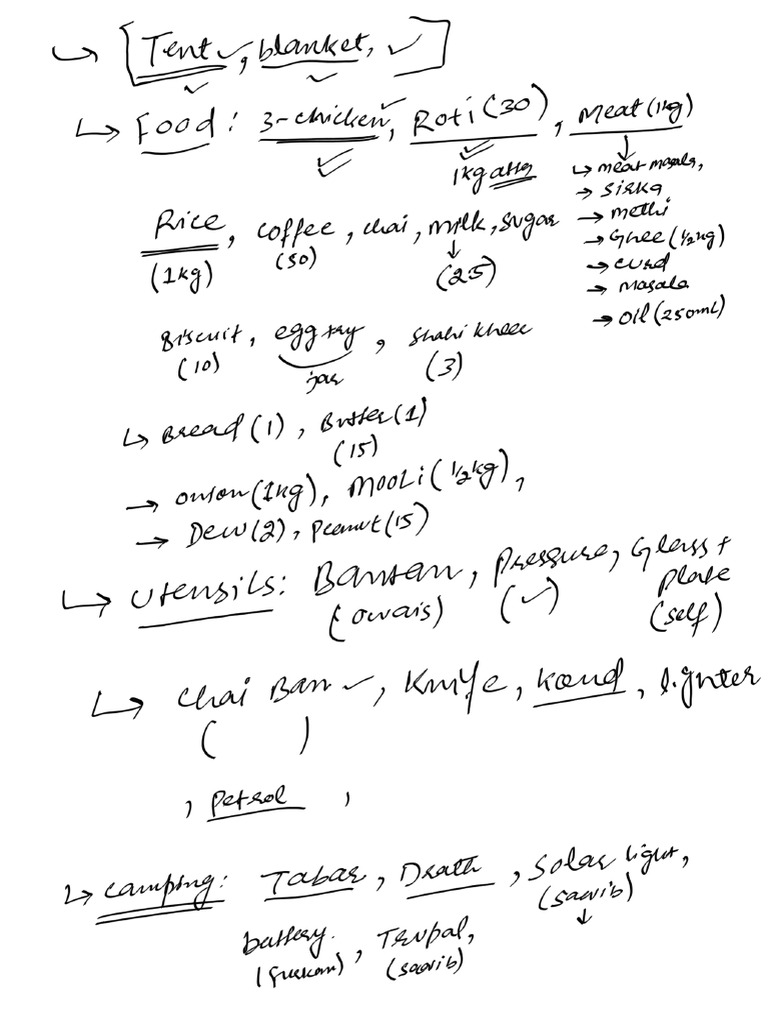 ↳ [Tent ✓, blanket, ✓]
↳ Food: 3-chicken, Roti (30), Meat (1kg)
1kg atta
↳ meat masala,
→ sirka
→ methi
→ Ghee (1/2 kg)
→ curd
→ masala
→ oil (250mL)
Rice, coffee, chai, milk, sugar
(1kg) (50) (25)
Biscuit, egg tray, Shahi kheer
(10) jar (3)
↳ Bread (1), Butter (1)
(15)
→ onion (1kg), MOOLi (1/2 kg),
→ Dew (2), Peanut (15)
↳ Utensils: Bantan, Pressure, Glass + Plate
(owais) (✓) (self)
↳ chai Ban ✓, Knife, , lighter
( )
, Petrol ,
↳ camping: Tabar, Drath, Solar light,
(saarib)
battery, Trupal,
(saarib)